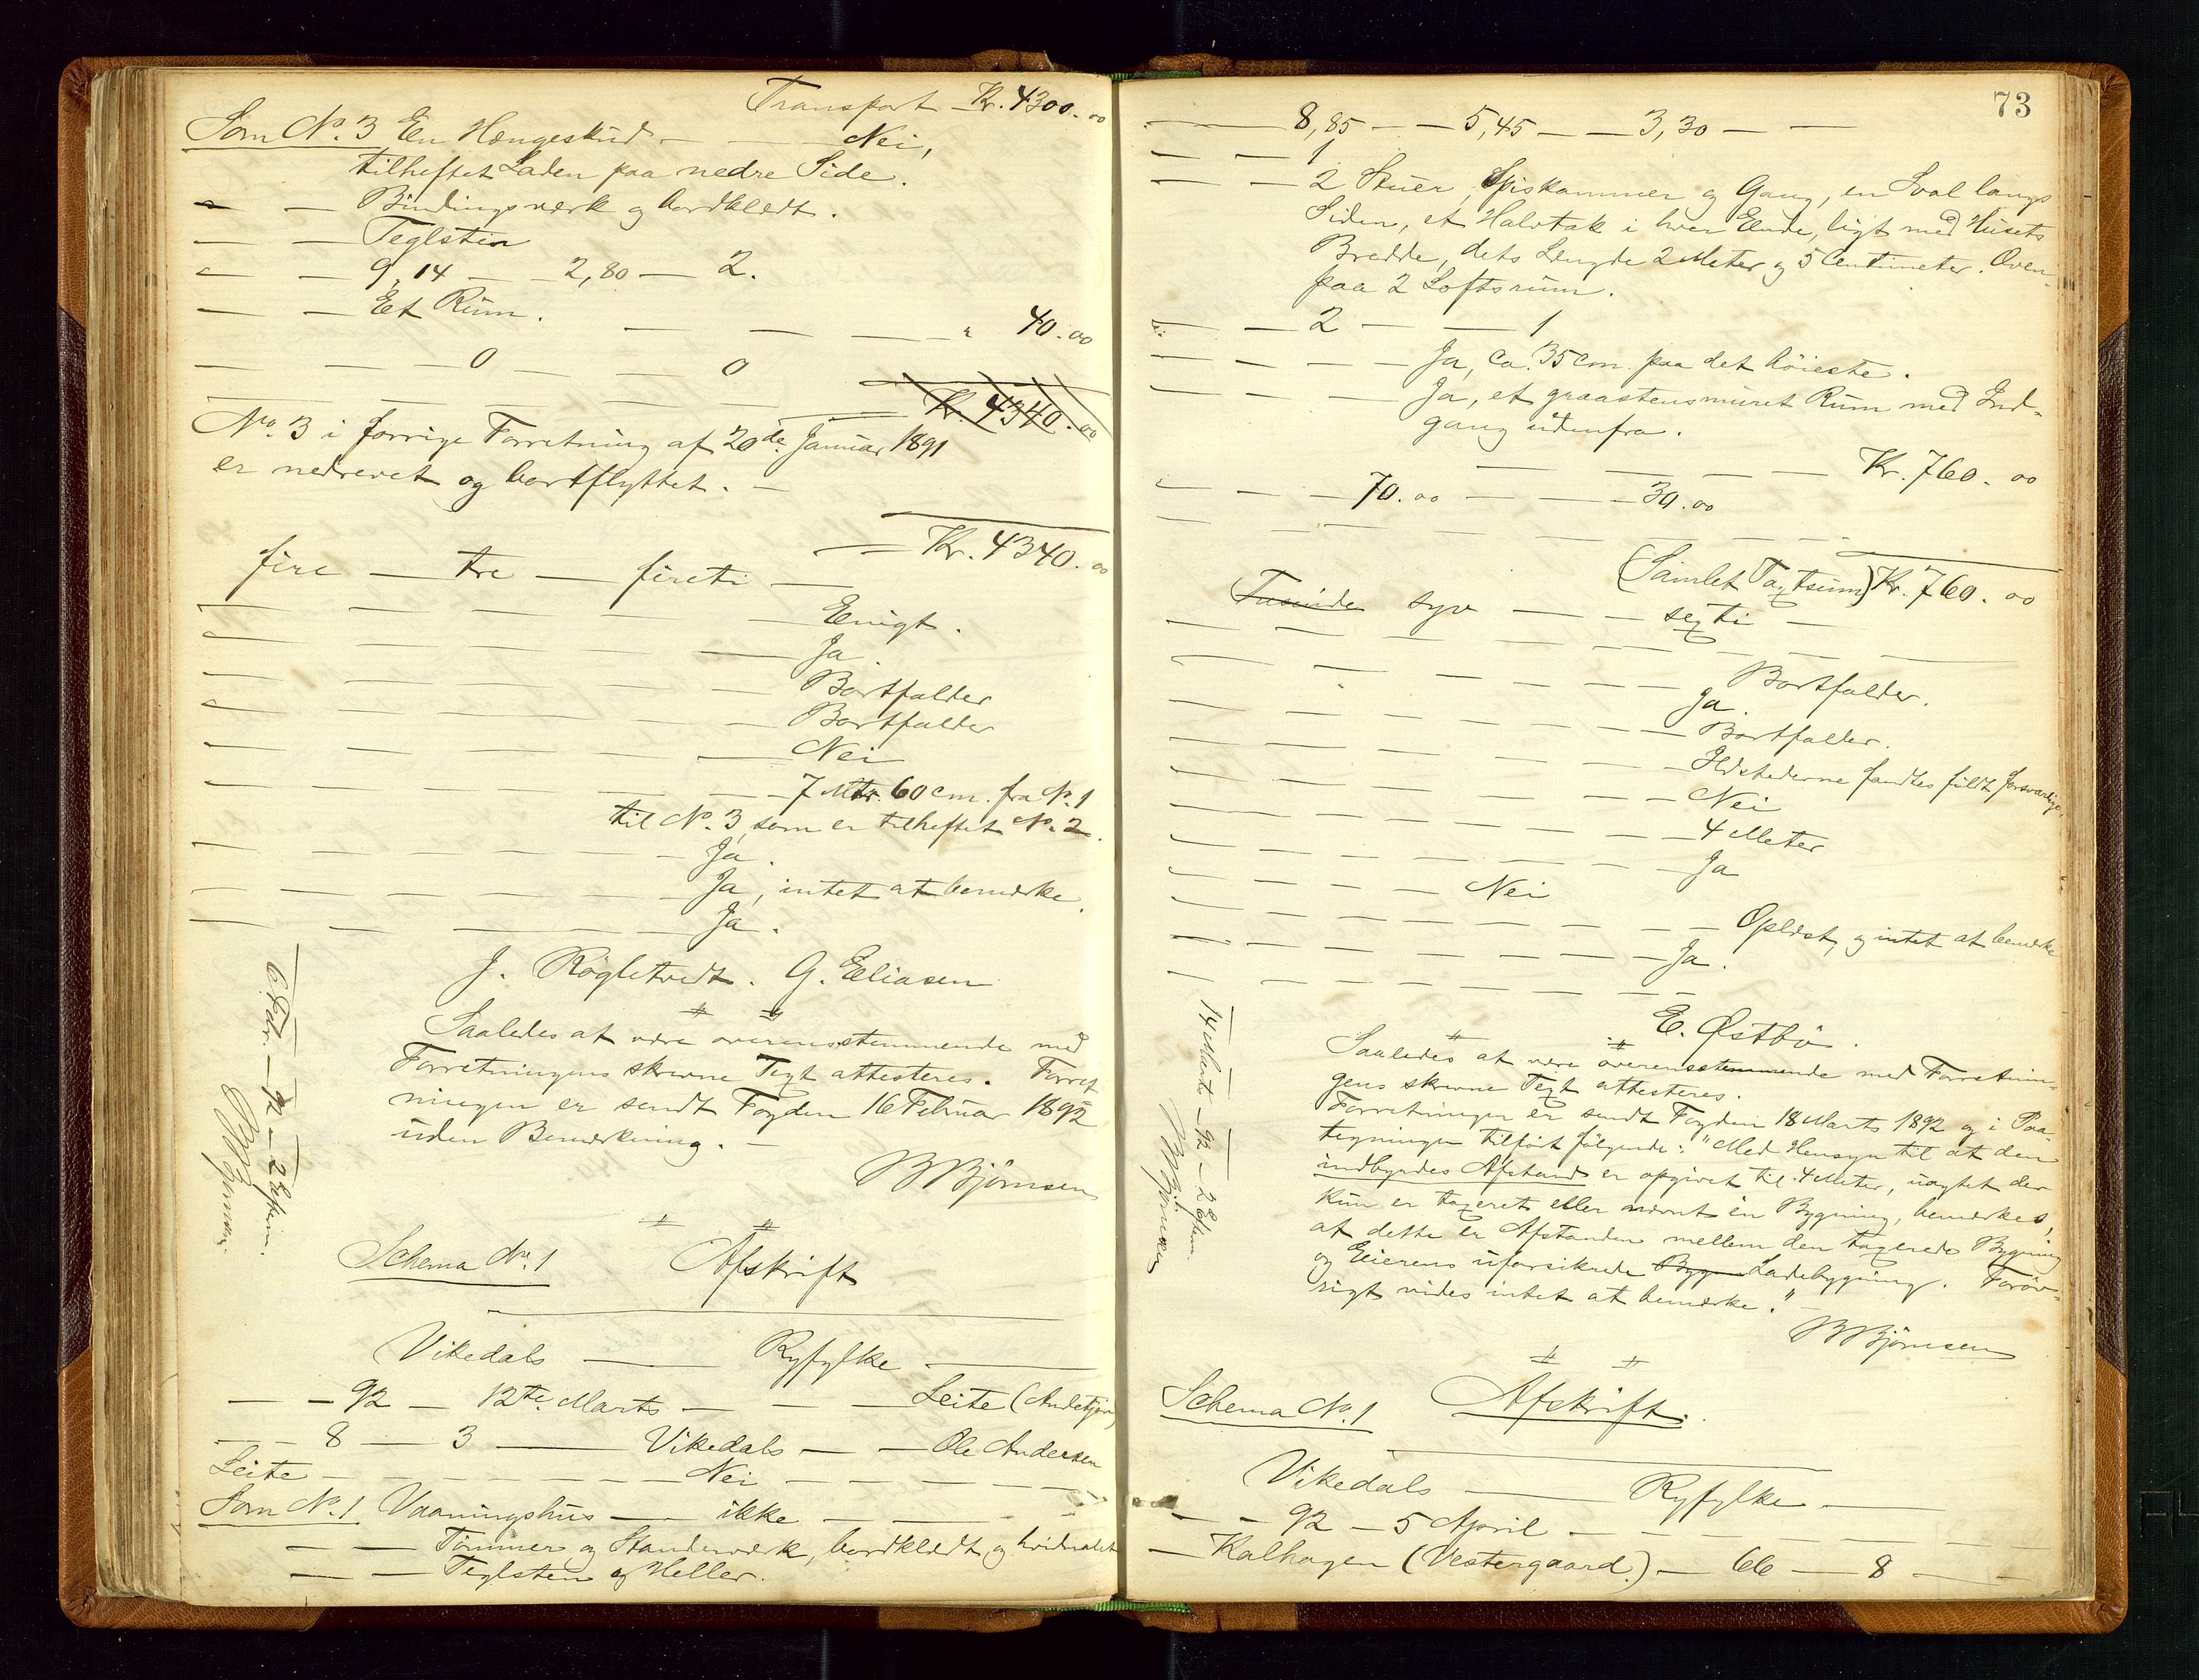 Transport Kr. 4300.00
Som No. 3 En Hængeskud — — Nei,
tilheftet Laden paa nedre Side.
— — Bindingsværk og bordklædt.
— — Teglsten
— — 9,14 — — 2,80 — 2.
— — Et Rum. — — — " 40.00
— — — 0 — — 0
Kr. 4340.00
No. 3 i forrige Forretning af 20de Januar 1891
er nedrevet og bortflyttet. —
Kr. 4340.00
fire — tre — fireti —
— — — — Enigt.
— — — — Ja
— — — — Bortfalder
— — — — Bortfalder
— — — — Nei
— — — — 7 Mtr. 60 cm. fra No. 1
til No. 3, som er tilheftet No. 2.
— — — — Ja.
— — — — Ja, intet at bemærke.
— — — — Ja.
J. Røgletvedt. G. Eliasen
Saaledes at være overensstemmende med
Forretningens skrevne Text attesteres. Forret
ningen er sendt Fogden 16 Februar 1892
uden Bemærkning. —
BBjørnsen
6 Febr. — 92 — 2
BBjørnsen
Schema No. 1 Afskrift
Vikedals — Ryfylke —
— — 92 — 12te Marts — — — Leite
— — 8 — 3 — Vikedals — — Ole Andersen
Leite — — — — Nei — — —
Som No. 1 Vaaningshus — ikke — — —
— — Tømmer og Standerværk, bordklædt og hvidmalet
— — Teglsten og Heller.
73
— 8,85 — — 5,45 — — 3,30 — —
— — 1
— — 2 Stuer, Spiskammer og Gang, en Sval langs
Siden, et Halvtak i hver Ende, ligt med Husets
Bredde, dets Længde 2 Meter og 5 Centimeter. Oven-
paa 2 Loftsrum.
— — 2 — — 1
— — — — Ja, ca. 35 cm. paa det høieste.
— — — — Ja, et graastensmuret Rum med Ind-
gang udenfra.
— — — — Kr. 760.00
— — — 70.00 — — — 30.00
(Samlet Taxtsum) Kr. 760.00
Tusinde syv — — sexti —
— — — — Bortfalder.
— — — — Ja.
— — — — Bortfalder.
— — — — Ildstederne fandtes fuldt forsvarlige.
— — — — Nei
— — — — 4 Meter
— — — — Ja
— — — — Nei
— — — — Oplæst, og intet at bemærke
— — — — Ja.
E. Østbø.
Saaledes at være overensstemmende med Forretnin-
gens skrevne Text attesteres.
Forretningen er sendt Fogden 18 Marts 1892 og i Paa-
tegningen tilført følgende: "Med Hensyn til at den
indbyrdes Afstand er opgivet til 4 Meter, uagtet der
kun er taxeret eller nævnt én Bygning, bemærkes,
at dette er Afstanden mellem den taxerede Bygning
og Eierens uforsikrede Byg Ladebygning. Forøv-
rigt vides intet at bemærke." —
BBjørnsen
14 Marts — 92 — 2
BBjørnsen
Schema No. 1 Afskrift.
Vikedals — Ryfylke —
— — 92 — 5 April — — — — —
— Kalhagen (Vestergaard.) — 66 — 8 — —